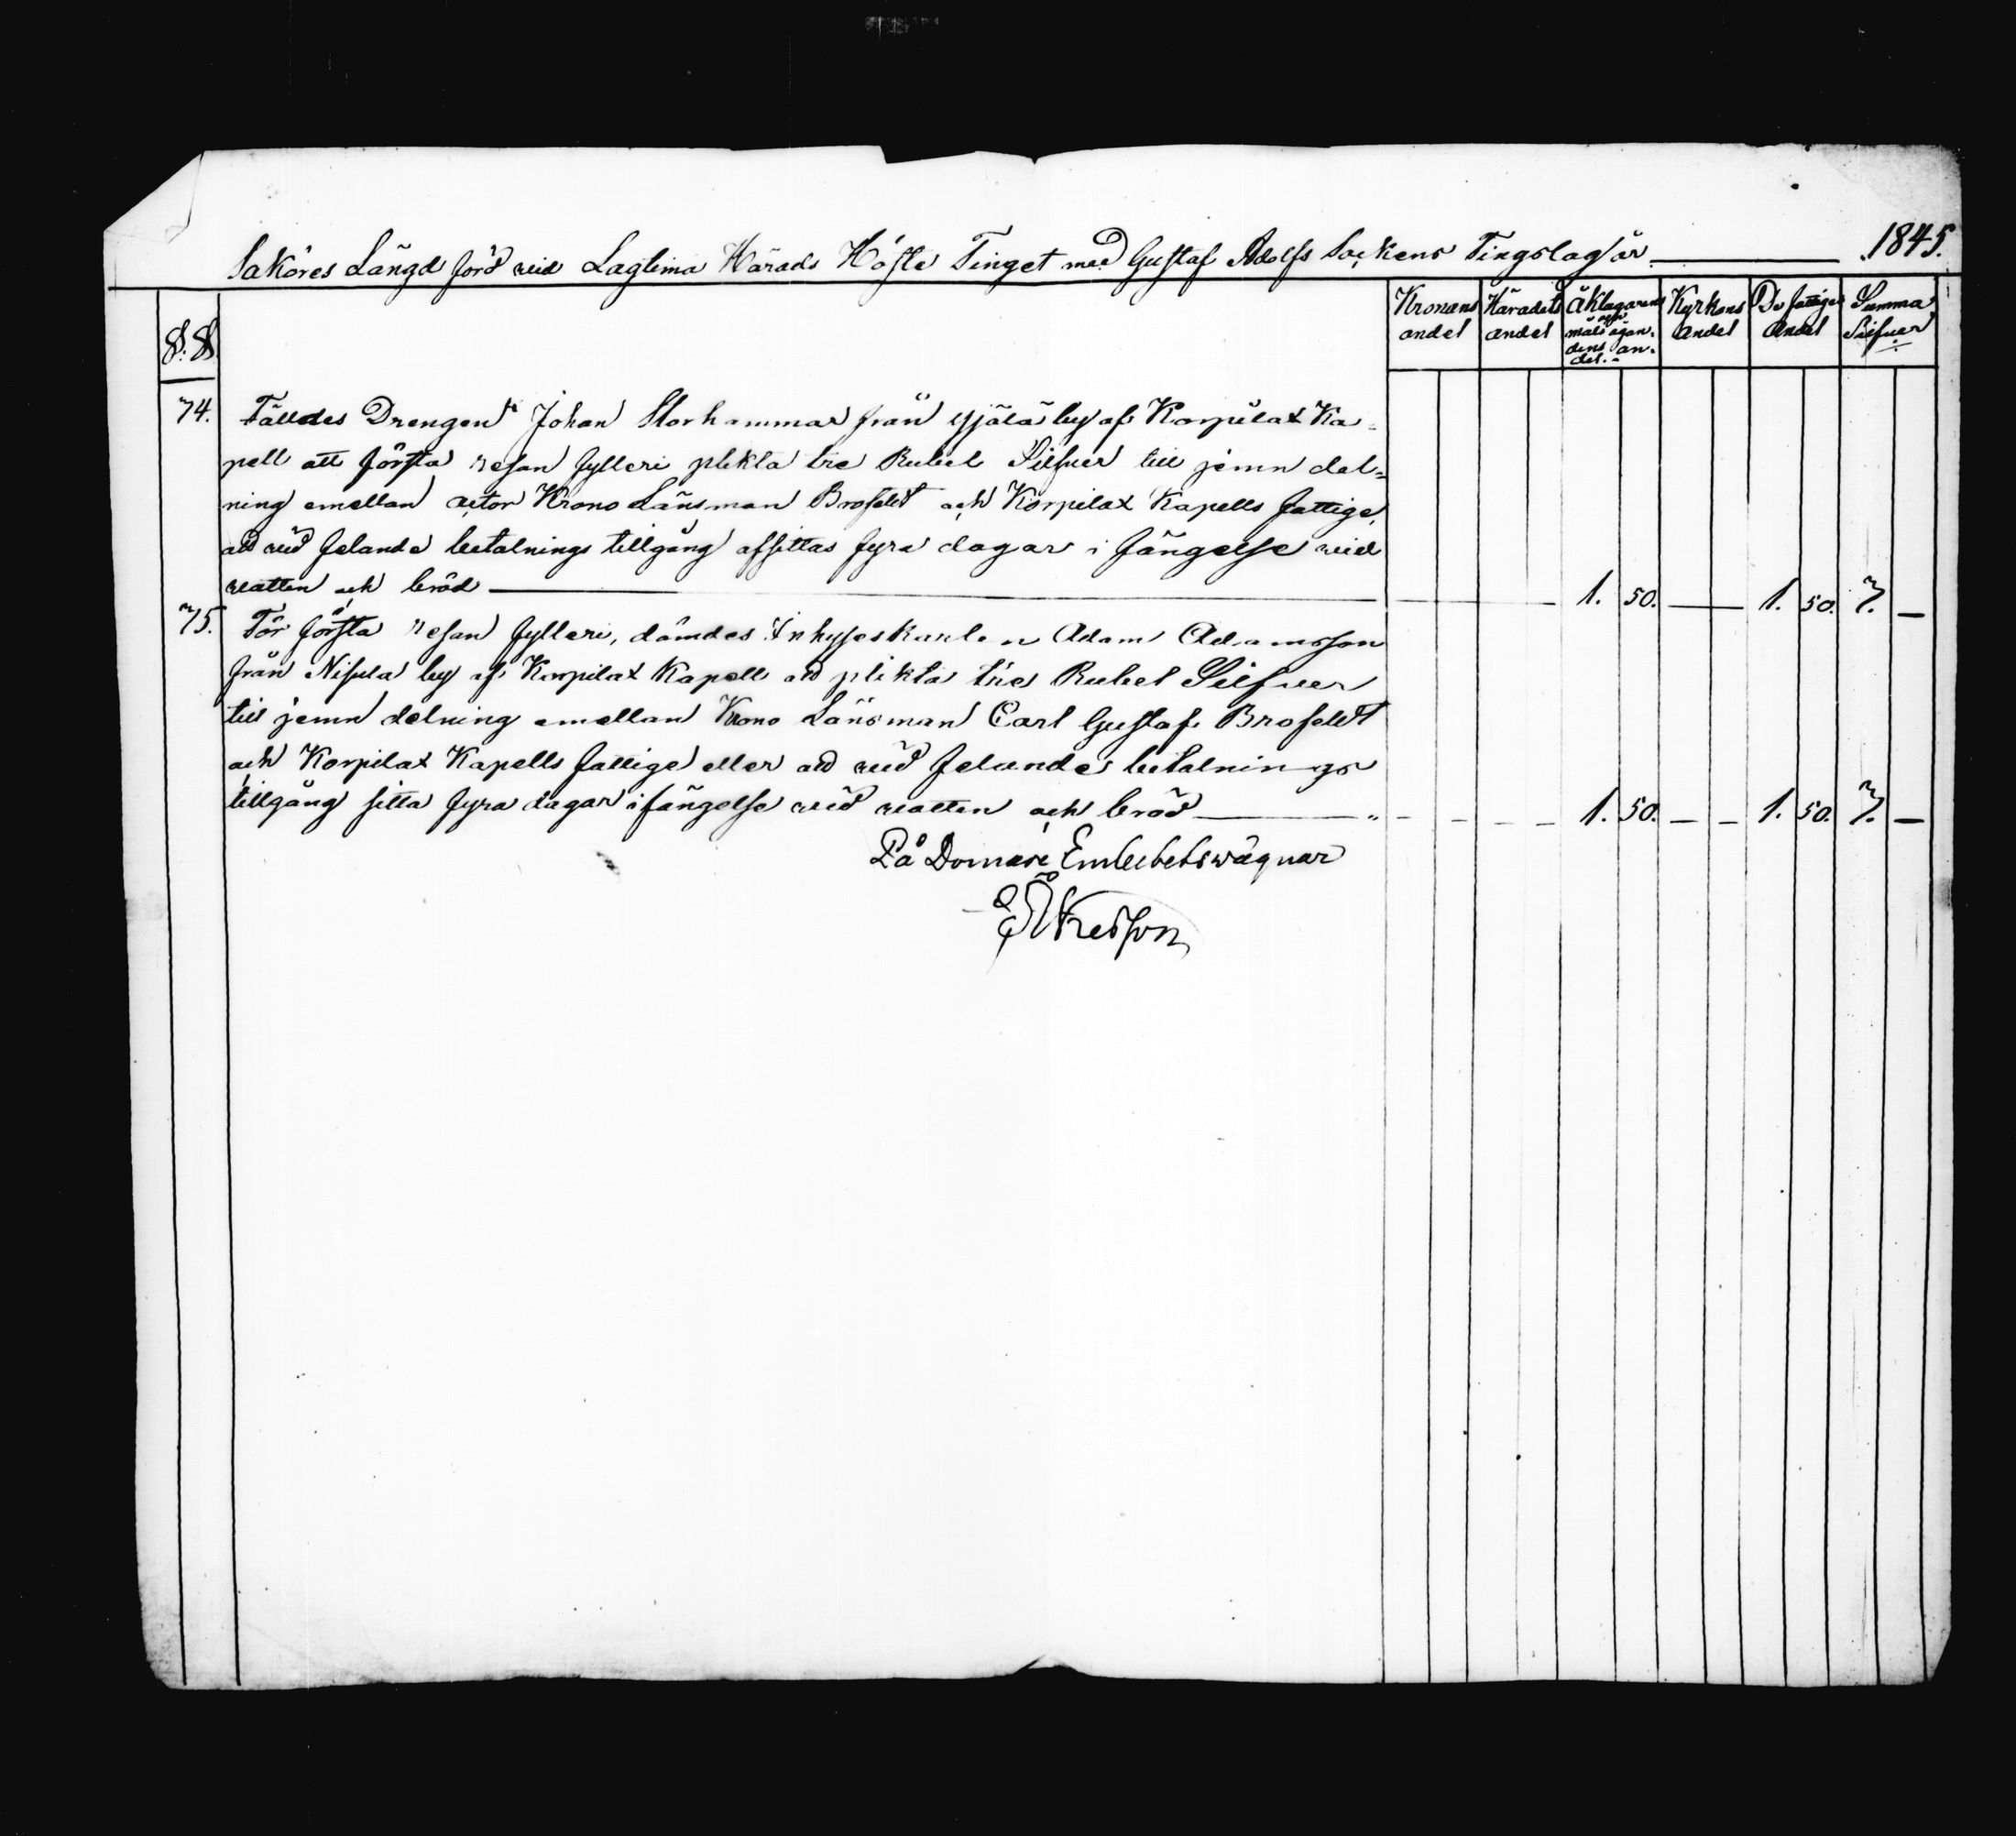 Saköres Längd förd vid Lagtima Härads Höste Tinget med Gustaf Adolfs Sockens Tingslag år 1845.
§. §
Kronans andel
Häradets andel
Åklagarens och målsägandens andel.
Kyrkans Andel
De fattiges Andel
Summa Silfver
74. Fälldes Drengen Johan Storhammar från by af Korpilax Ka=
pell att första resan fylleri plikta tre Rubel Silfver till jemn del=
ning emellan actor Krono Länsman Brofeldt och Korpilax Kapells fattige,
att vid felande betalnings tillgång afsittas fyra dagar i fängelse vid
vatten och bröd — 1. 50. — 1. 50. 3. —
75. För första resan fylleri, dömdes Inhyseskarlen Adam Adamsson
från Nisula by af Korpilax Kapell att plikta tre Rubel Silfver
till jemn delning emellan Krono Länsman Carl Gustaf Brofeldt
och Korpilax Kapells fattige eller att vid felande betalnings
tillgång sitta fyra dagar i fängelse vid vatten och bröd — 1. 50. — 1. 50. 3. —
På Domare Embetets wägnar